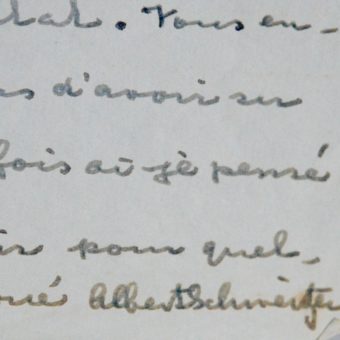 . Vous en-
d'avoir su
fois où je pensé
pour quel-
Albert Schweitzer